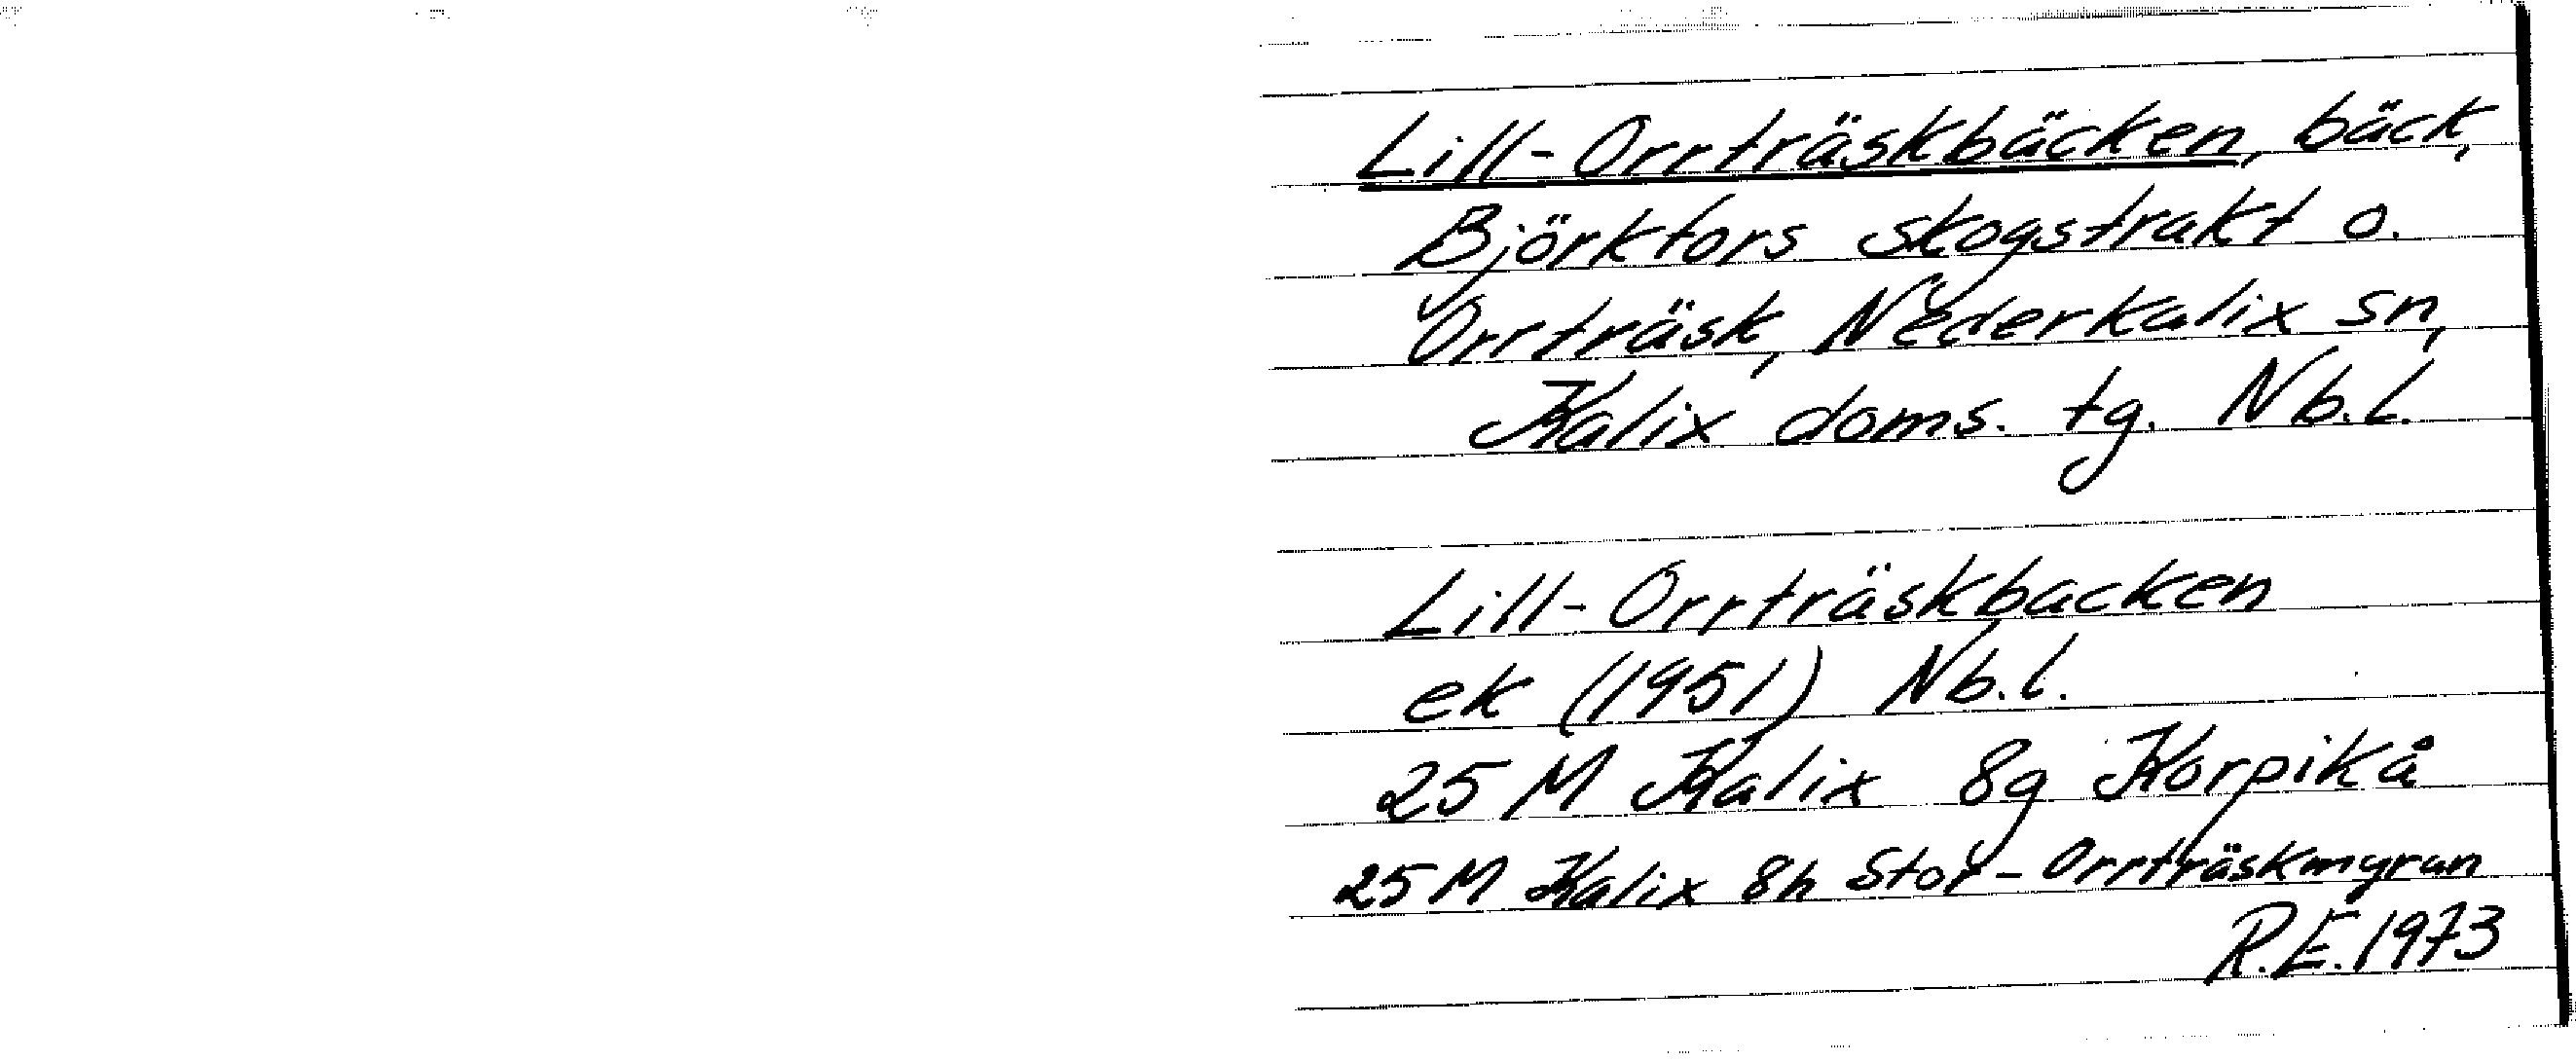 Lill-Orrträskbäcken, bäck,
Björkfors skogstrakt o.
Orrträsk, Nederkalix sn,
Kalix doms. tg. Nb.l.
Lill-Orrträskbacken
ek (1951) Nb.l.
25 M Kalix 8g Korpikå
25 M Kalix 8h Stor-Orrträskmyran
R.E. 1973